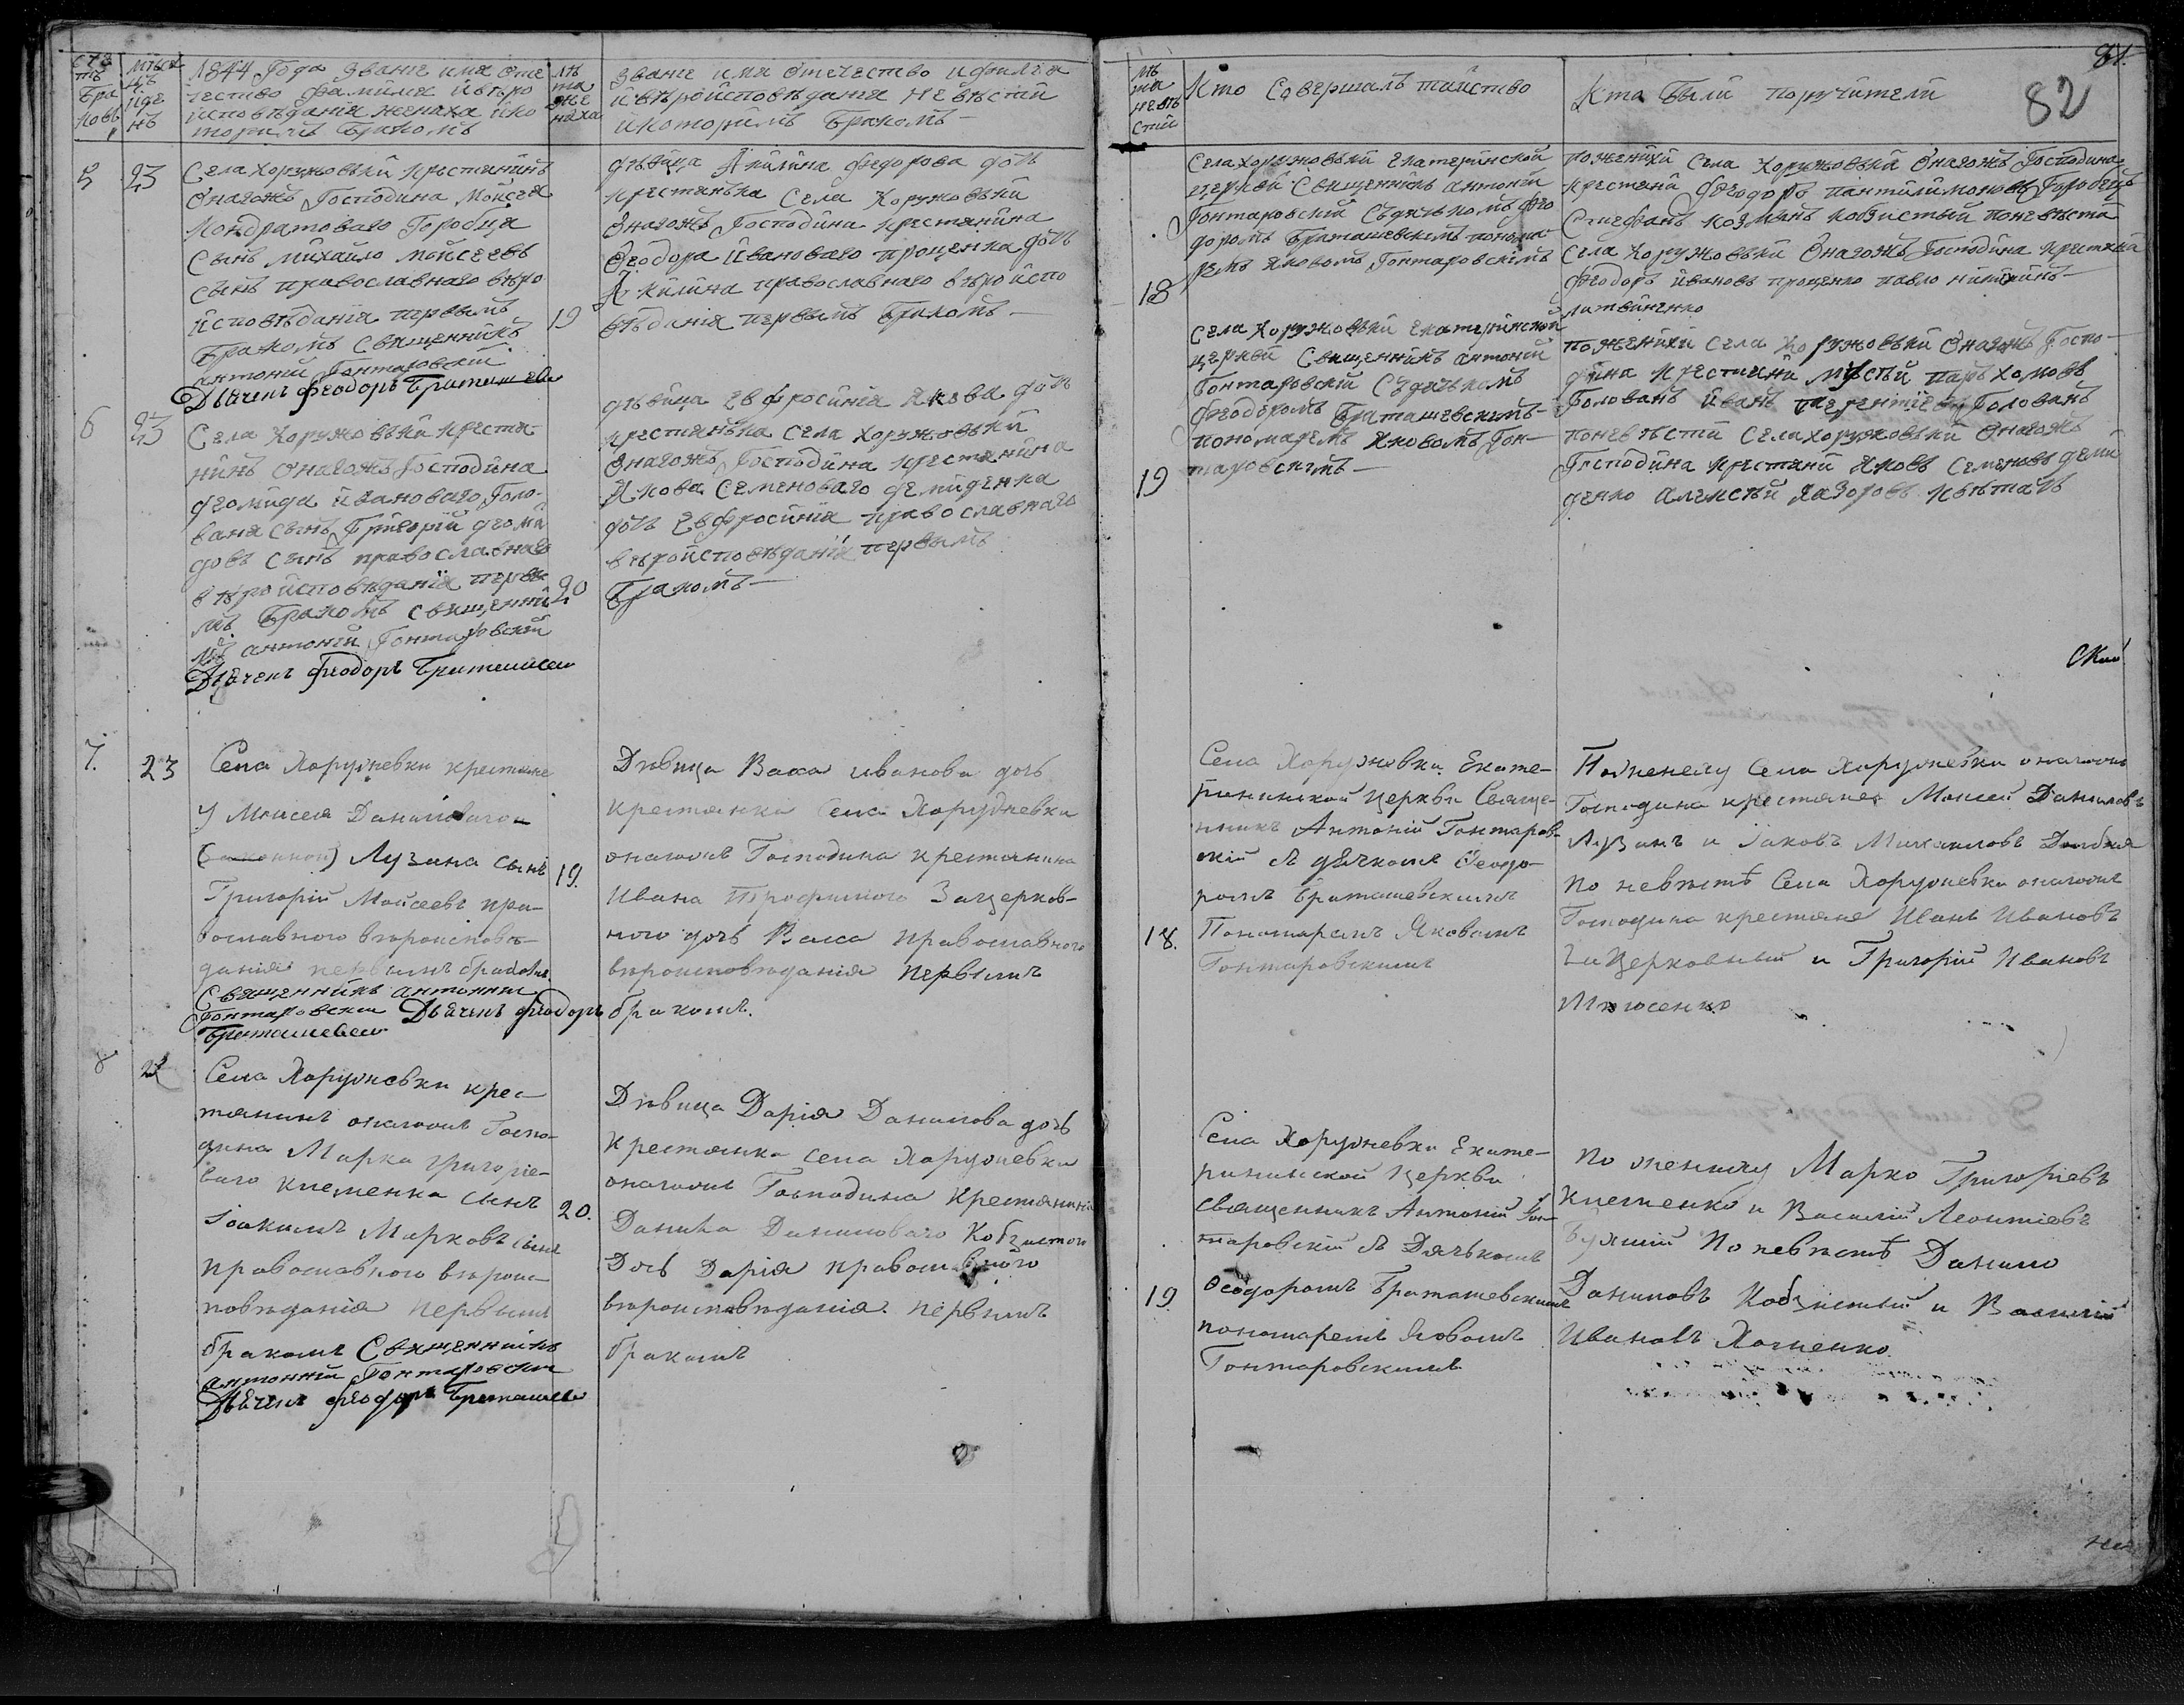 счетъ браковъ
мѣсяцъ и день
1844 Года Званіе имя отечество фамилія и вѣро исповѣданія жениха и которимъ Бракомъ
лѣта жениха
Званіе имя отечество и филія и вѣроисповѣданія невѣсти и которимъ Бракомъ
5
23
Села Хоружовки крестянинъ
Онагожъ Господина Моисея
Кондратоваго Городця
Сынъ михайло моисеевъ
сынъ православнаго вѣро
исповѣданія первымъ
Бракомъ Священникъ
антоній Гонтаровскій
Дьяченъ феодоръ Браташев
19
дѣвица Акилина федорова доч
крестянъка Села Хоружовки
Онагожъ Господина крестянина
Феодора Ивановаго проценка доч
Акилина православнаго вѣроиспо
вѣданія первымъ Бракомъ
6
23
Села Хоружовки креста
нинъ Онагожъ Господина
деомида ивановаго Голо-
вана сынъ Григорій деоми
довъ сынъ православнаго
вѣроисповѣданія первы
мъ Бракомъ священни
къ антоній Гонтаровскій
Дьяченъ феодоръ Браташев
20
дѣвица Евфросинія Якова доч
крестянъка села хоружовки
Онагожъ Господина крестянина
Якова Семеноваго демиденка
доч Евфросинія православнаго
вѣроисповѣданія первымъ
Бракомъ
7.
23
Села Хоружевки крестяне
у Моисея Даниловаго
Лузана сынъ
Григорій Мойсеевъ пра-
вославного вѣроисповѣ-
данія первымъ бракомъ
Священникъ антоний
Гонтаровскій Дьяченъ феодоръ
Браташевс
19.
Дѣвица Васса иванова дочь
крестянка Села Хоружевки
онагожъ Господина крестянина
Ивана Трофимого Зацерков-
ного дочь Васса православного
вѣроисповѣданія первымъ
бракомъ.
8
Села Хоружевки крес-
тянинъ онагожъ Госпо-
дина Марка григорье-
ваго Клеменка сынъ
Іоакимъ Марковъ сынъ
православного вѣроис-
повѣданія первымъ
бракомъ Священникъ
антонній Гонтаровскій
Дьяченъ феодоръ Браташев
20.
Дѣвица Дарія Данилова дочь
Крестянка села Хоружевки
онагожъ Господина Крестянина
Данила Даниловаго Кобзистого
Дочь Дарія православного
вѣроисповѣданія первымъ
бракомъ
81.
82
лѣта невѣсти
Кто Совершалъ таиство
Кто Были поручители
18
Села хоружовки Екатеринской
церкви Священникъ антоній
Гонтаровскій Съдячькомъ фео
доромъ Браташевскимъ понома-
ремъ Яковомъ Гонтаровскимъ
поженихи Села Хоружовки Онагожъ Господина
крестяни Феодоръ пантилимоновъ Городець
Стефанъ козминъ кобзистый поневѣсти
Села Хоружовки Онагожъ Господина крестяни
Феодоръ ивановъ проценко павло никитинъ
литвиненко
19
Села Хоружовки Екатеринской
церкви Священникъ антоній
Гонтаровскій Съдячкомъ
Феодоромъ Браташевскимъ-
пономаремъ Яковомъ Гон-
таровскимъ
поженихи Села Хоружовки Онагожъ Госпо-
дина крестяни Мусій пархомовъ
Голованъ иванъ терентіевъ Голованъ
поневѣсти Села хоружовки Онагожъ
Господина крестяни Яковъ Семеновъ деми
денко алексѣй Назоровъ
ский
18.
Села Хоружевки Екате-
рининской Церкви Священ-
никъ Антоній Гонтаров-
скій съ дячкомъ Феодо-
ромъ Браташевскимъ
Пономаремъ Яковомъ
Гонтаровскимъ
По жениху Села Хоружевки онагожъ
Господина крестяне Моисей Даниловъ
Лузанъ и Іаковъ Михаиловъ
по невѣстѣ Села Хоружевки онагожъ
Господина крестяне Иванъ Ивановъ
Зацерковный и Григорій Ивановъ
19.
Села Хоружевки Екате-
рининской Церкви
Священникъ Антоній Гон-
таровскій съ Дячькомъ
Феодоромъ Браташевскимъ
пономаремъ Яковомъ
Гонтаровскимъ
По жениху Марко Григорьевъ
Клеменко и Василій Леонтіевъ
По невѣстѣ Данило
Даниловъ Кобзистый и Василій
Ивановъ Хоменко